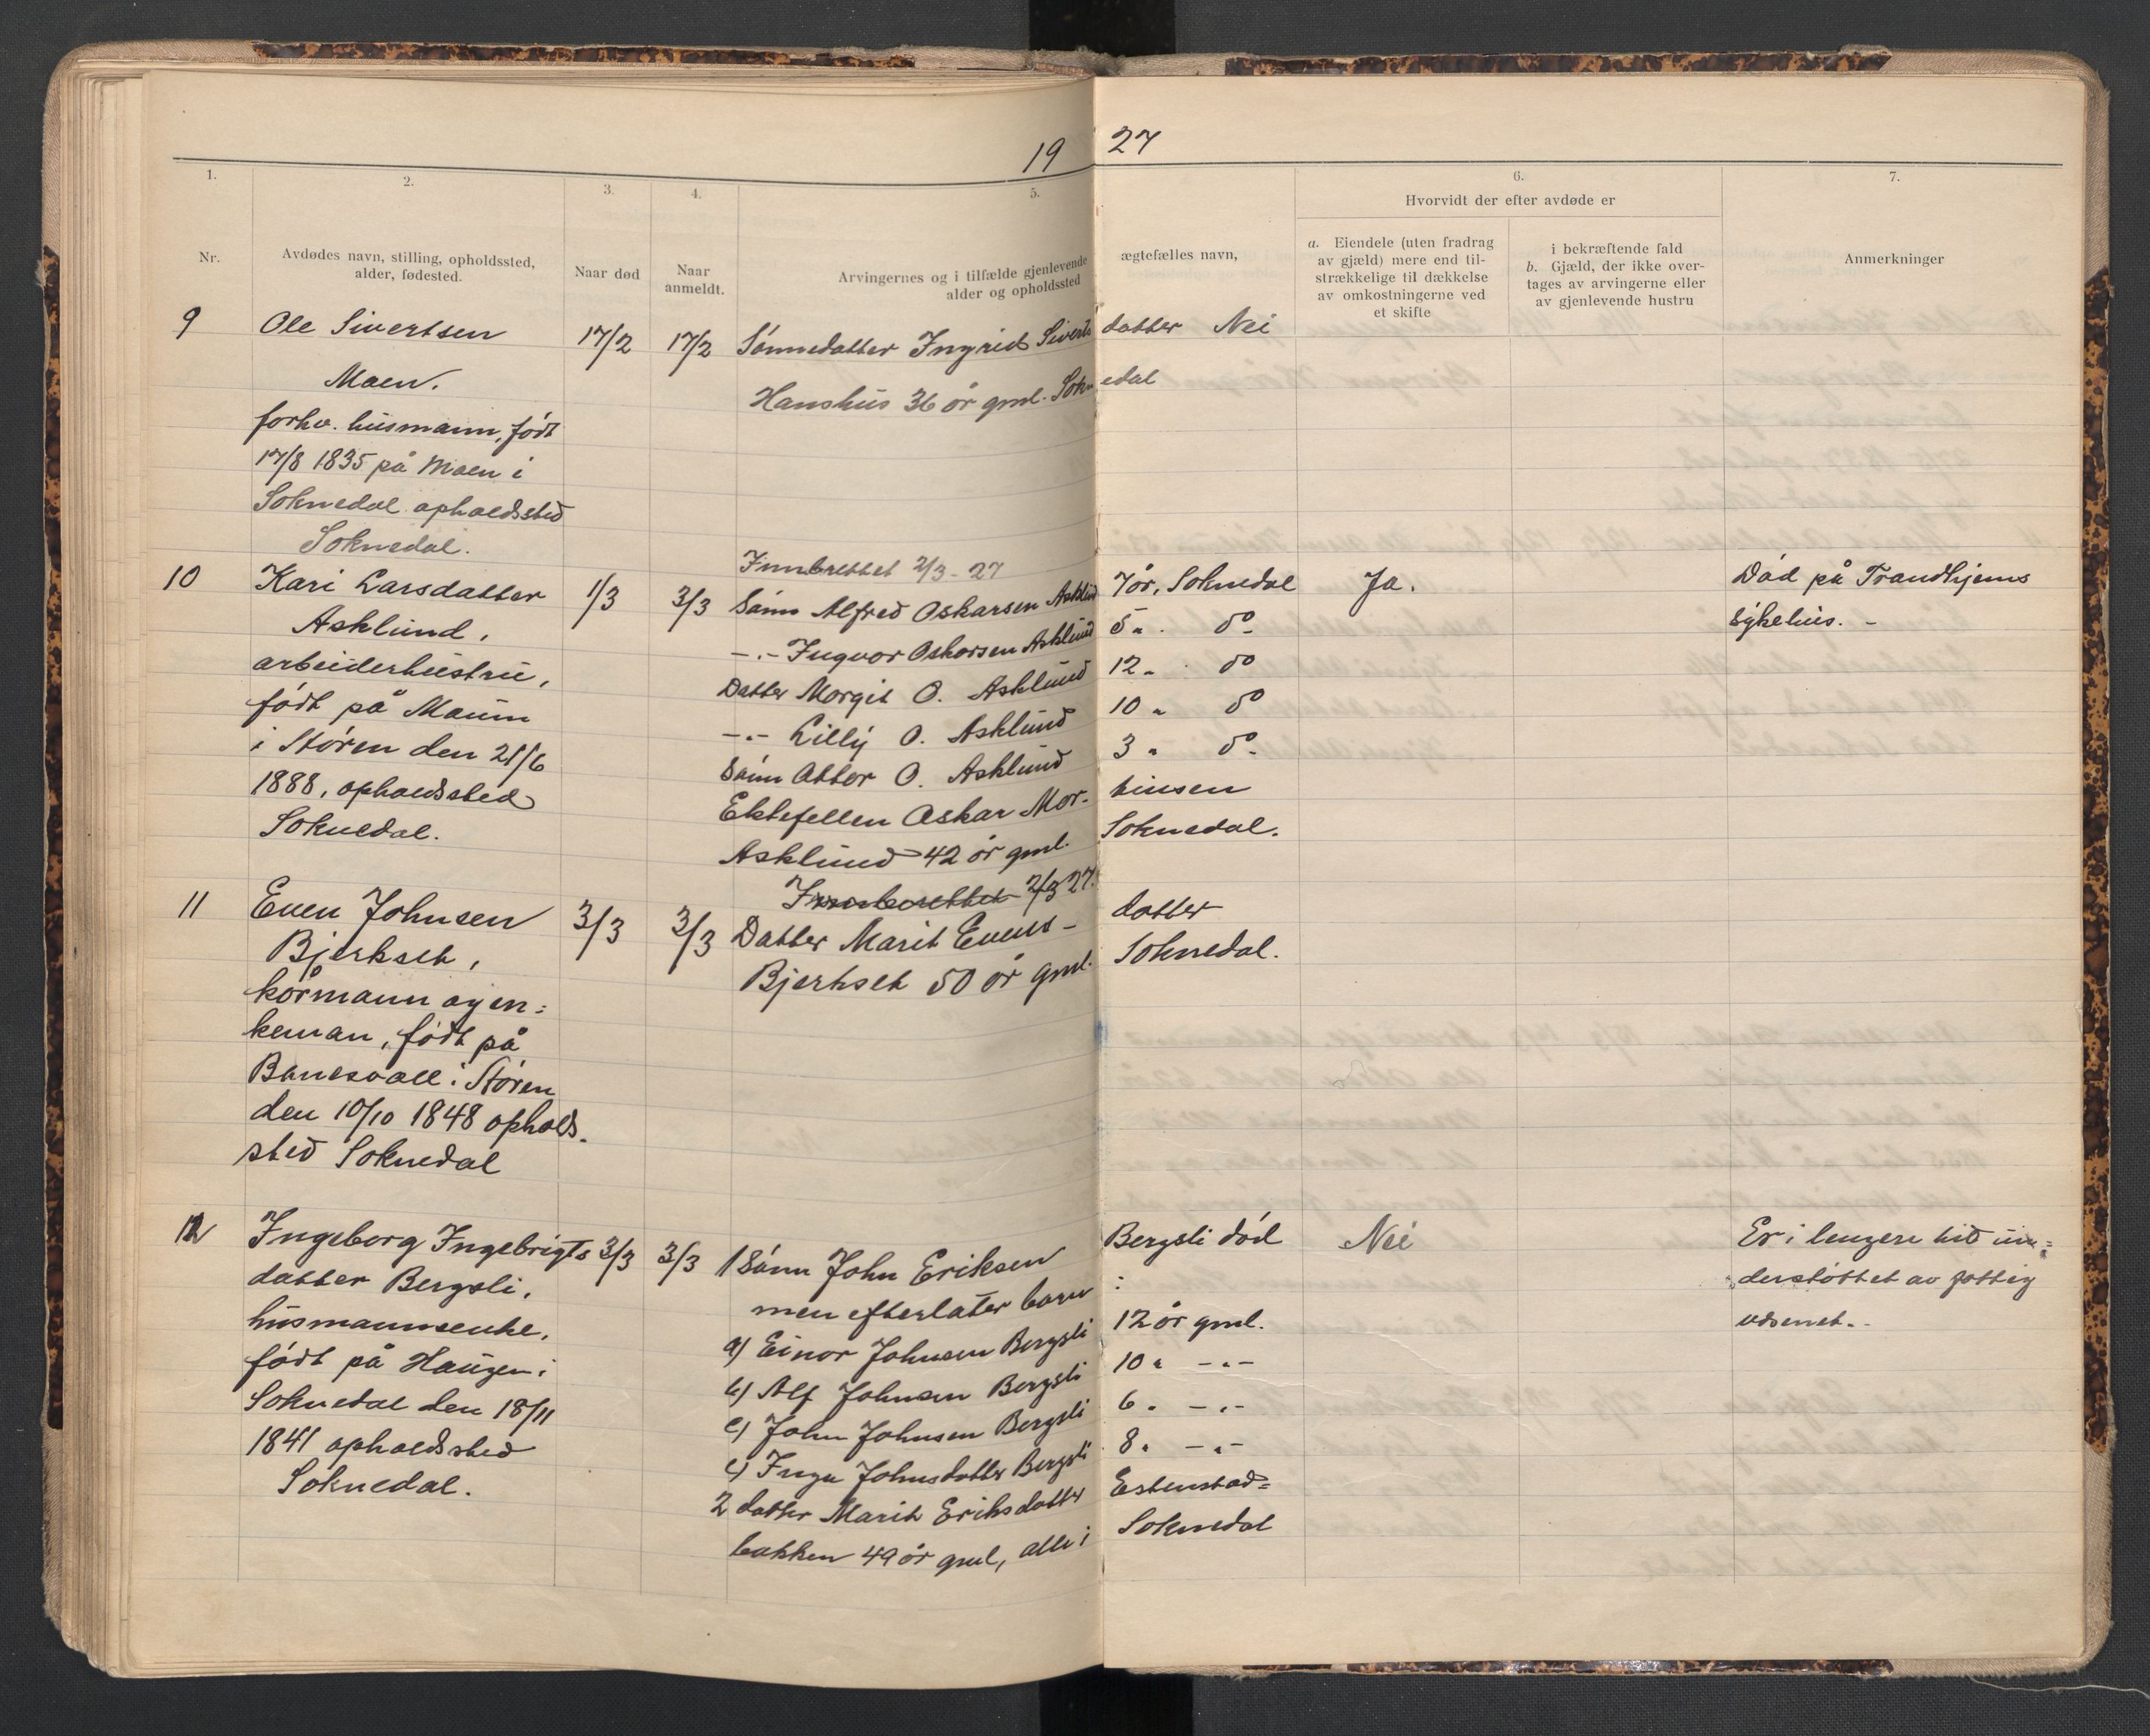 19 27
1. 2. 3. 4. 5. 6. 7.
Hvorvidt der efter avdøde er
Nr.
Avdødes navn, stilling, opholdssted,
alder, fødested.
Naar død
Naar
anmeldt.
Arvingernes og i tilfælde gjenlevende ægtefælles navn,
alder og opholdssted
a. Eiendele (uten fradrag
av gjæld) mere end til-
strækkelige til dækkelse
av omkostningerne ved
et skifte
i bekræftende fald
b. Gjæld, der ikke over-
tages av arvingerne eller
av gjenlevende hustru
Anmerkninger
9 Ole Sivertsen 17/2 17/2 Sønnedatter Ingrid Siverts datter Nei
Moen. Hanshus 36 år gml. Soknedal
forhv. husmann, født
17/8 1835 på Moen i
Soknedal opholdssted
Soknedal.
Innberettet 2/3-27
10 Kari Larsdatter 1/3 3/3 Sønn Alfred Oskarsen Asklund 7 år, Soknedal Ja. Død på Trondhjems
Asklund, -"- Ingvar Oskarsen Asklund 5 " do sykehus. -
arbeiderhustru, Datter Margit O. Asklund 12 " do
født på Maum -"- Lilly O. Asklund 10 " do
i Støren den 21/6 Sønn Ottar O. Asklund 3 " do
1888, opholdssted Ektefellen Oskar Mor- tinsen
Soknedal. Asklund 42 år gml. Soknedal.
Innberettet 2/3 27.
11 Even Johnsen 3/3 3/3 Datter Marit Evens- datter
Bjerkset, Bjerkset 50 år gml. Soknedal.
kårmann og en=
keman, født på
i Støren
den 10/10 1848 opholds-
sted Soknedal
12 Ingeborg Ingebrigts 3/3 3/3 1 Sønn John Eriksen Bergsli død Nei Er i lengere tid un=
datter Bergsli, men efterlater barn : derstøttet av fattig
husmannsenke, a) Einar Johnsen Bergsli 12 år gml. vesenet.-
født på Haugen i b) Alf Johnsen Bergsli 10 " -"-
Soknedal den 18/11 c) John Johnsen Bergsli 6 " -"-
1841 opholdssted Inga Johnsdatter Bergsli 8 " -"-
Soknedal. 2 datter Marit Eriksdatter Estenstad=
bakken 49 år gml, alle i Soknedal